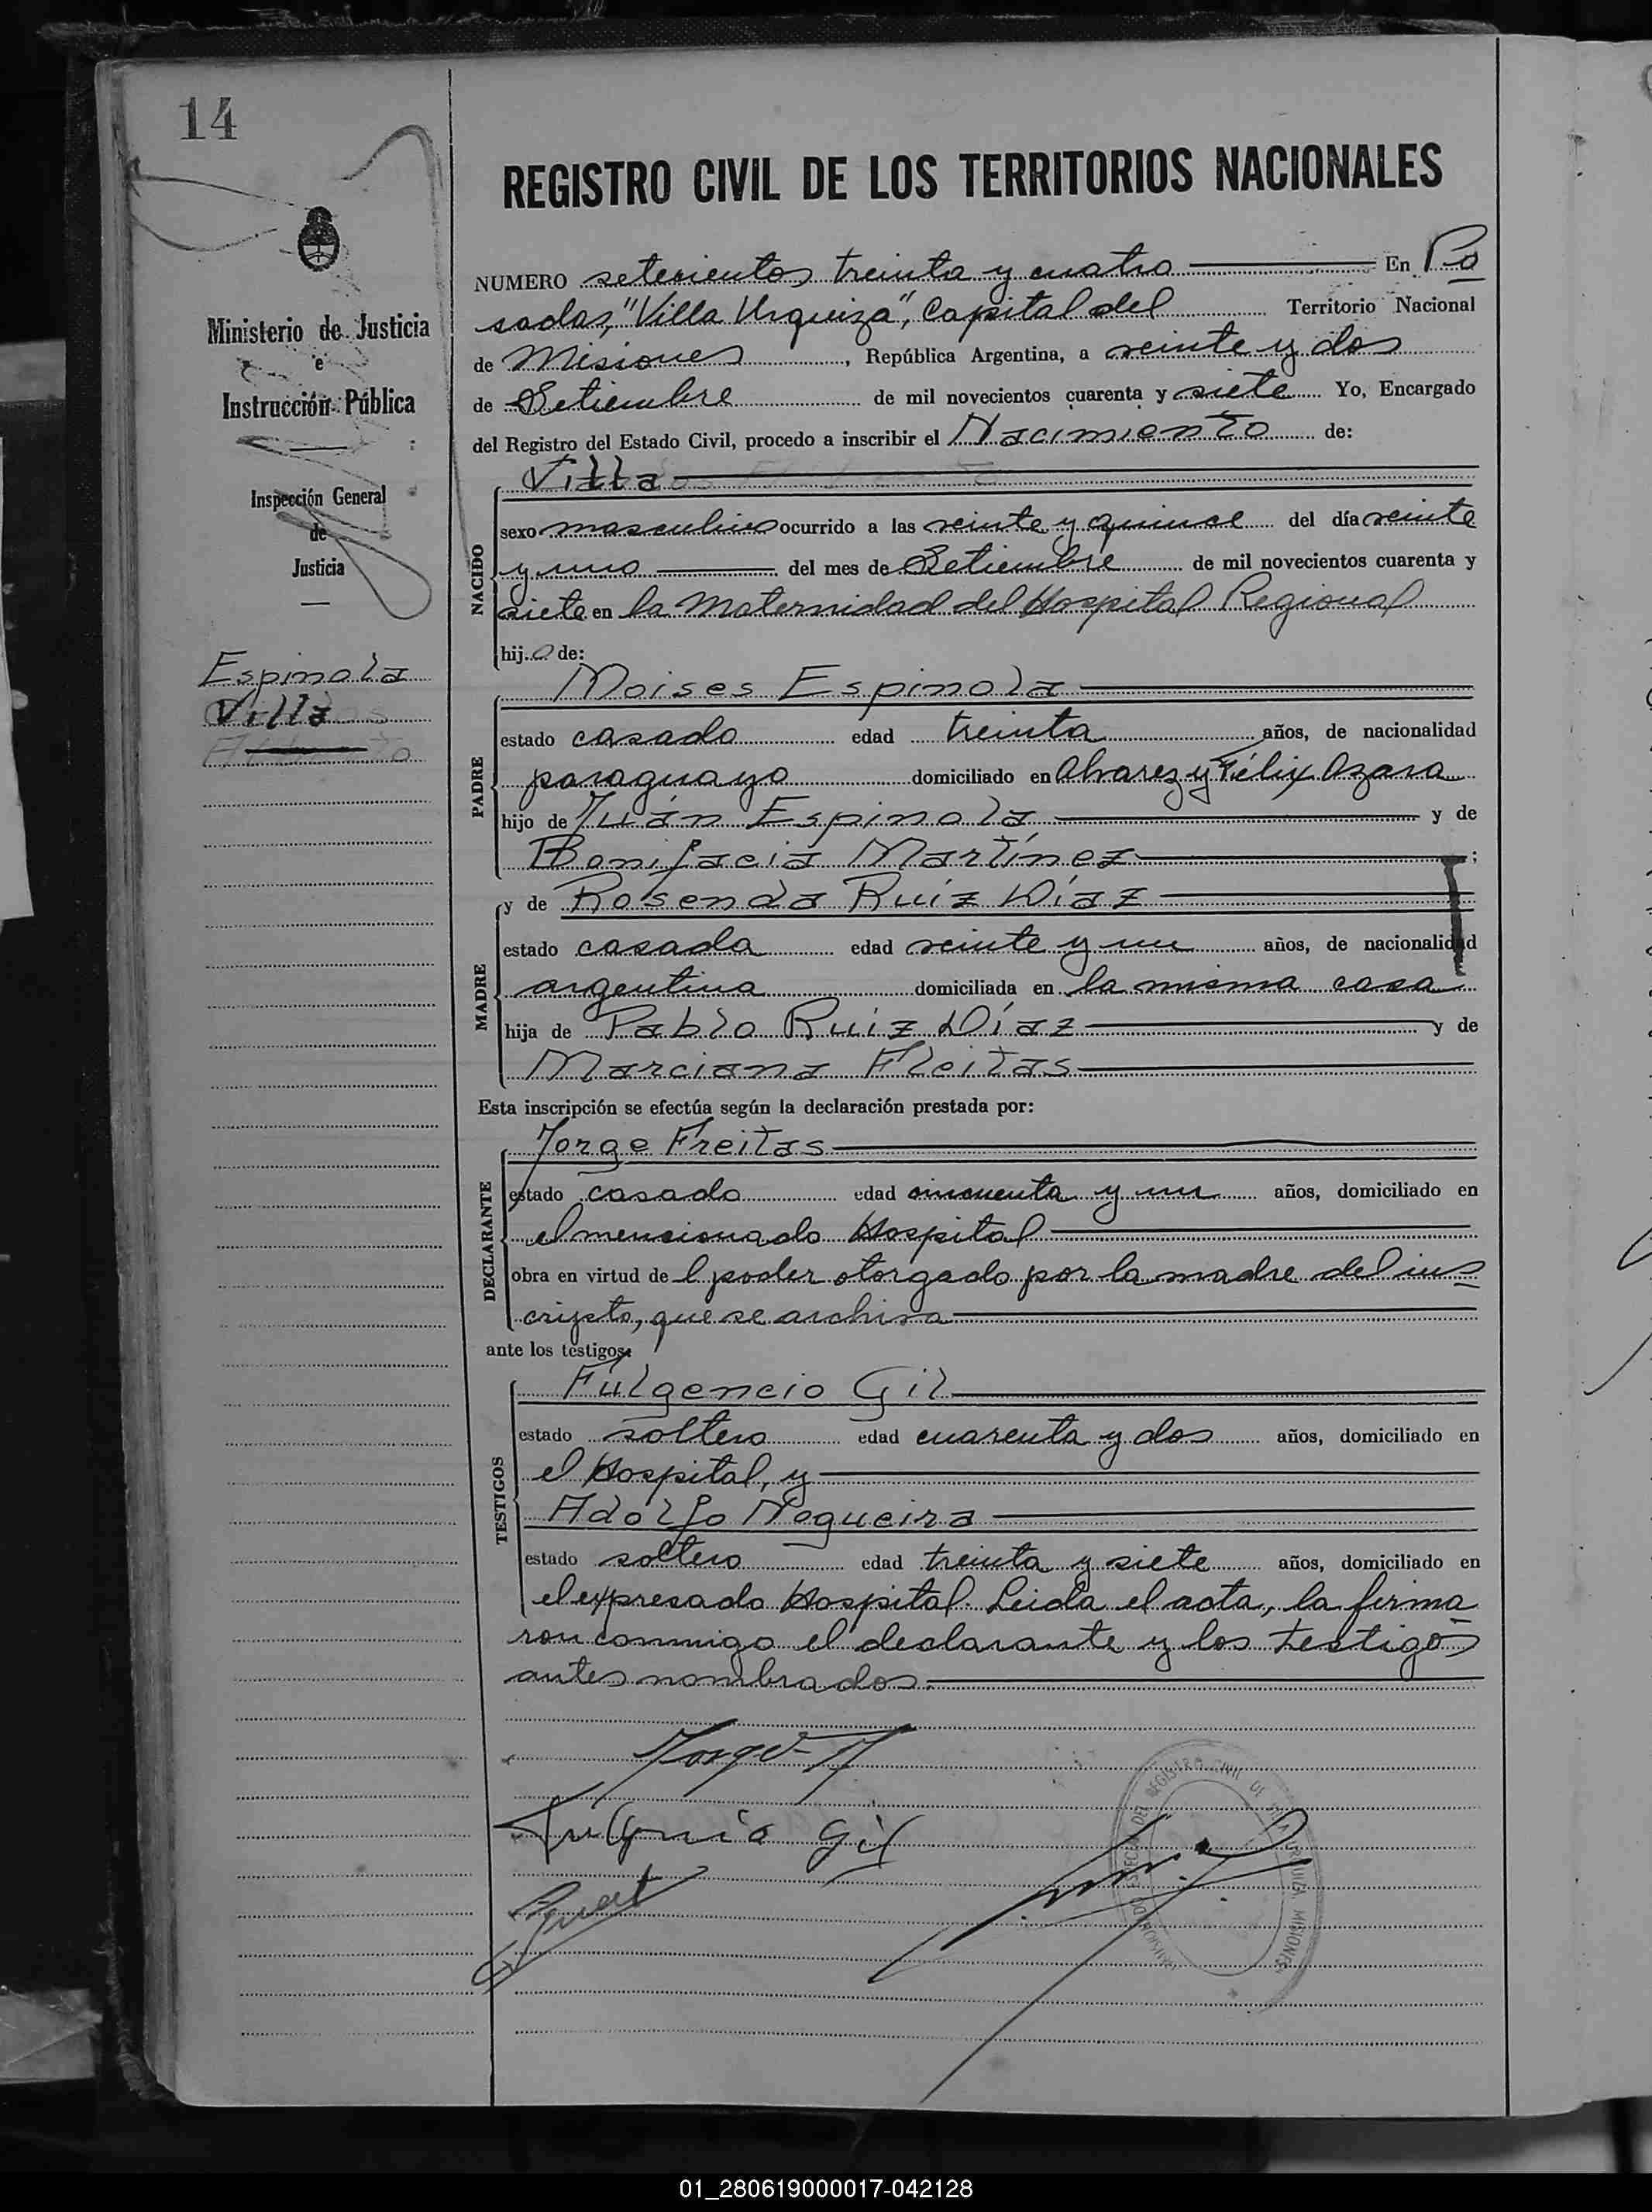 14
REGISTRO CIVIL DE LOS TERRITORIOS NACIONALES
Ministerio de Justicia
e
Instrucción Pública
Inspección General
de
Justicia
Espinola
Villa
NUMERO setecientos treinta y cuatro En Po
sadas, "Villa Urquiza", Capital del Territorio Nacional
de Misiones, República Argentina, a veinte y dos
de Setiembre de mil novecientos cuarenta y siete Yo, Encargado
del Registro del Estado Civil, procedo a inscribir el Nacimiento de:
Villa
NACIDO
sexo masculino ocurrido a las veinte y quince del día veinte
y uno del mes de Setiembre de mil novecientos cuarenta y
siete en la Maternidad del Hospital Regional
hijo de:
PADRE
Moises Espinola
estado casado edad treinta años, de nacionalidad
paraguayo domiciliado en Alvarez y Félix Azara
hijo de Juan Espinola y de
Bonifacia Martínez;
MADRE
y de Rosenda Ruiz Díaz
estado casada edad veinte y un años, de nacionalidad
argentina domiciliada en la misma casa
hija de Pablo Ruiz Díaz y de
Marciana Fleitas
Esta inscripción se efectúa según la declaración prestada por:
DECLARANTE
Jorge Freitas
estado casado edad cincuenta y un años, domiciliado en
el mencionado Hospital
obra en virtud del poder otorgado por la madre del ins
cripto, que se archiva
ante los testigos:
TESTIGOS
Fulgencio Gil
estado soltero edad cuarenta y dos años, domiciliado en
el Hospital, y
Adolfo Nogueira
estado soltero edad treinta y siete años, domiciliado en
el expresado Hospital. Leida el acta, la firma
ron conmigo el declarante y los testigos
antes nombrados.
Jorge
Fulgencio Gil
01_280619000017-042128